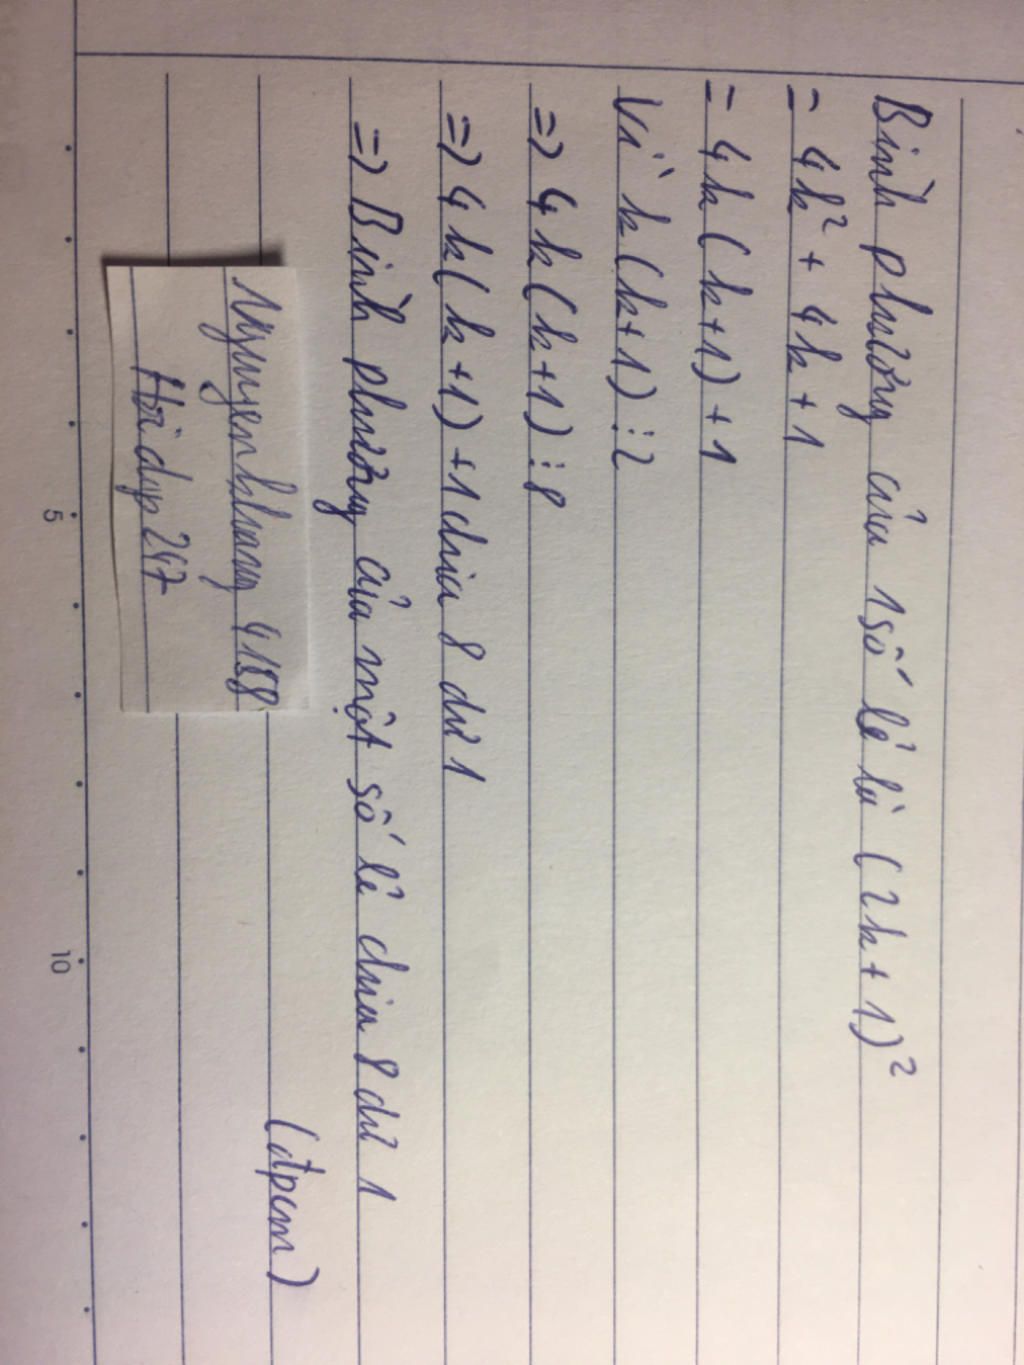 Bình phương của 1 số lẻ là (2k+1)²
= 4k² + 4k + 1
= 4k(k+1)+1
Vì k(k+1)⋮2
=> 4k(k+1)⋮8
=> 4k(k+1)+1 chia 8 dư 1
=> Bình phương của một số lẻ chia 8 dư 1
(đpcm)
Nguyenkhang 4188
Hoidap247
5
10